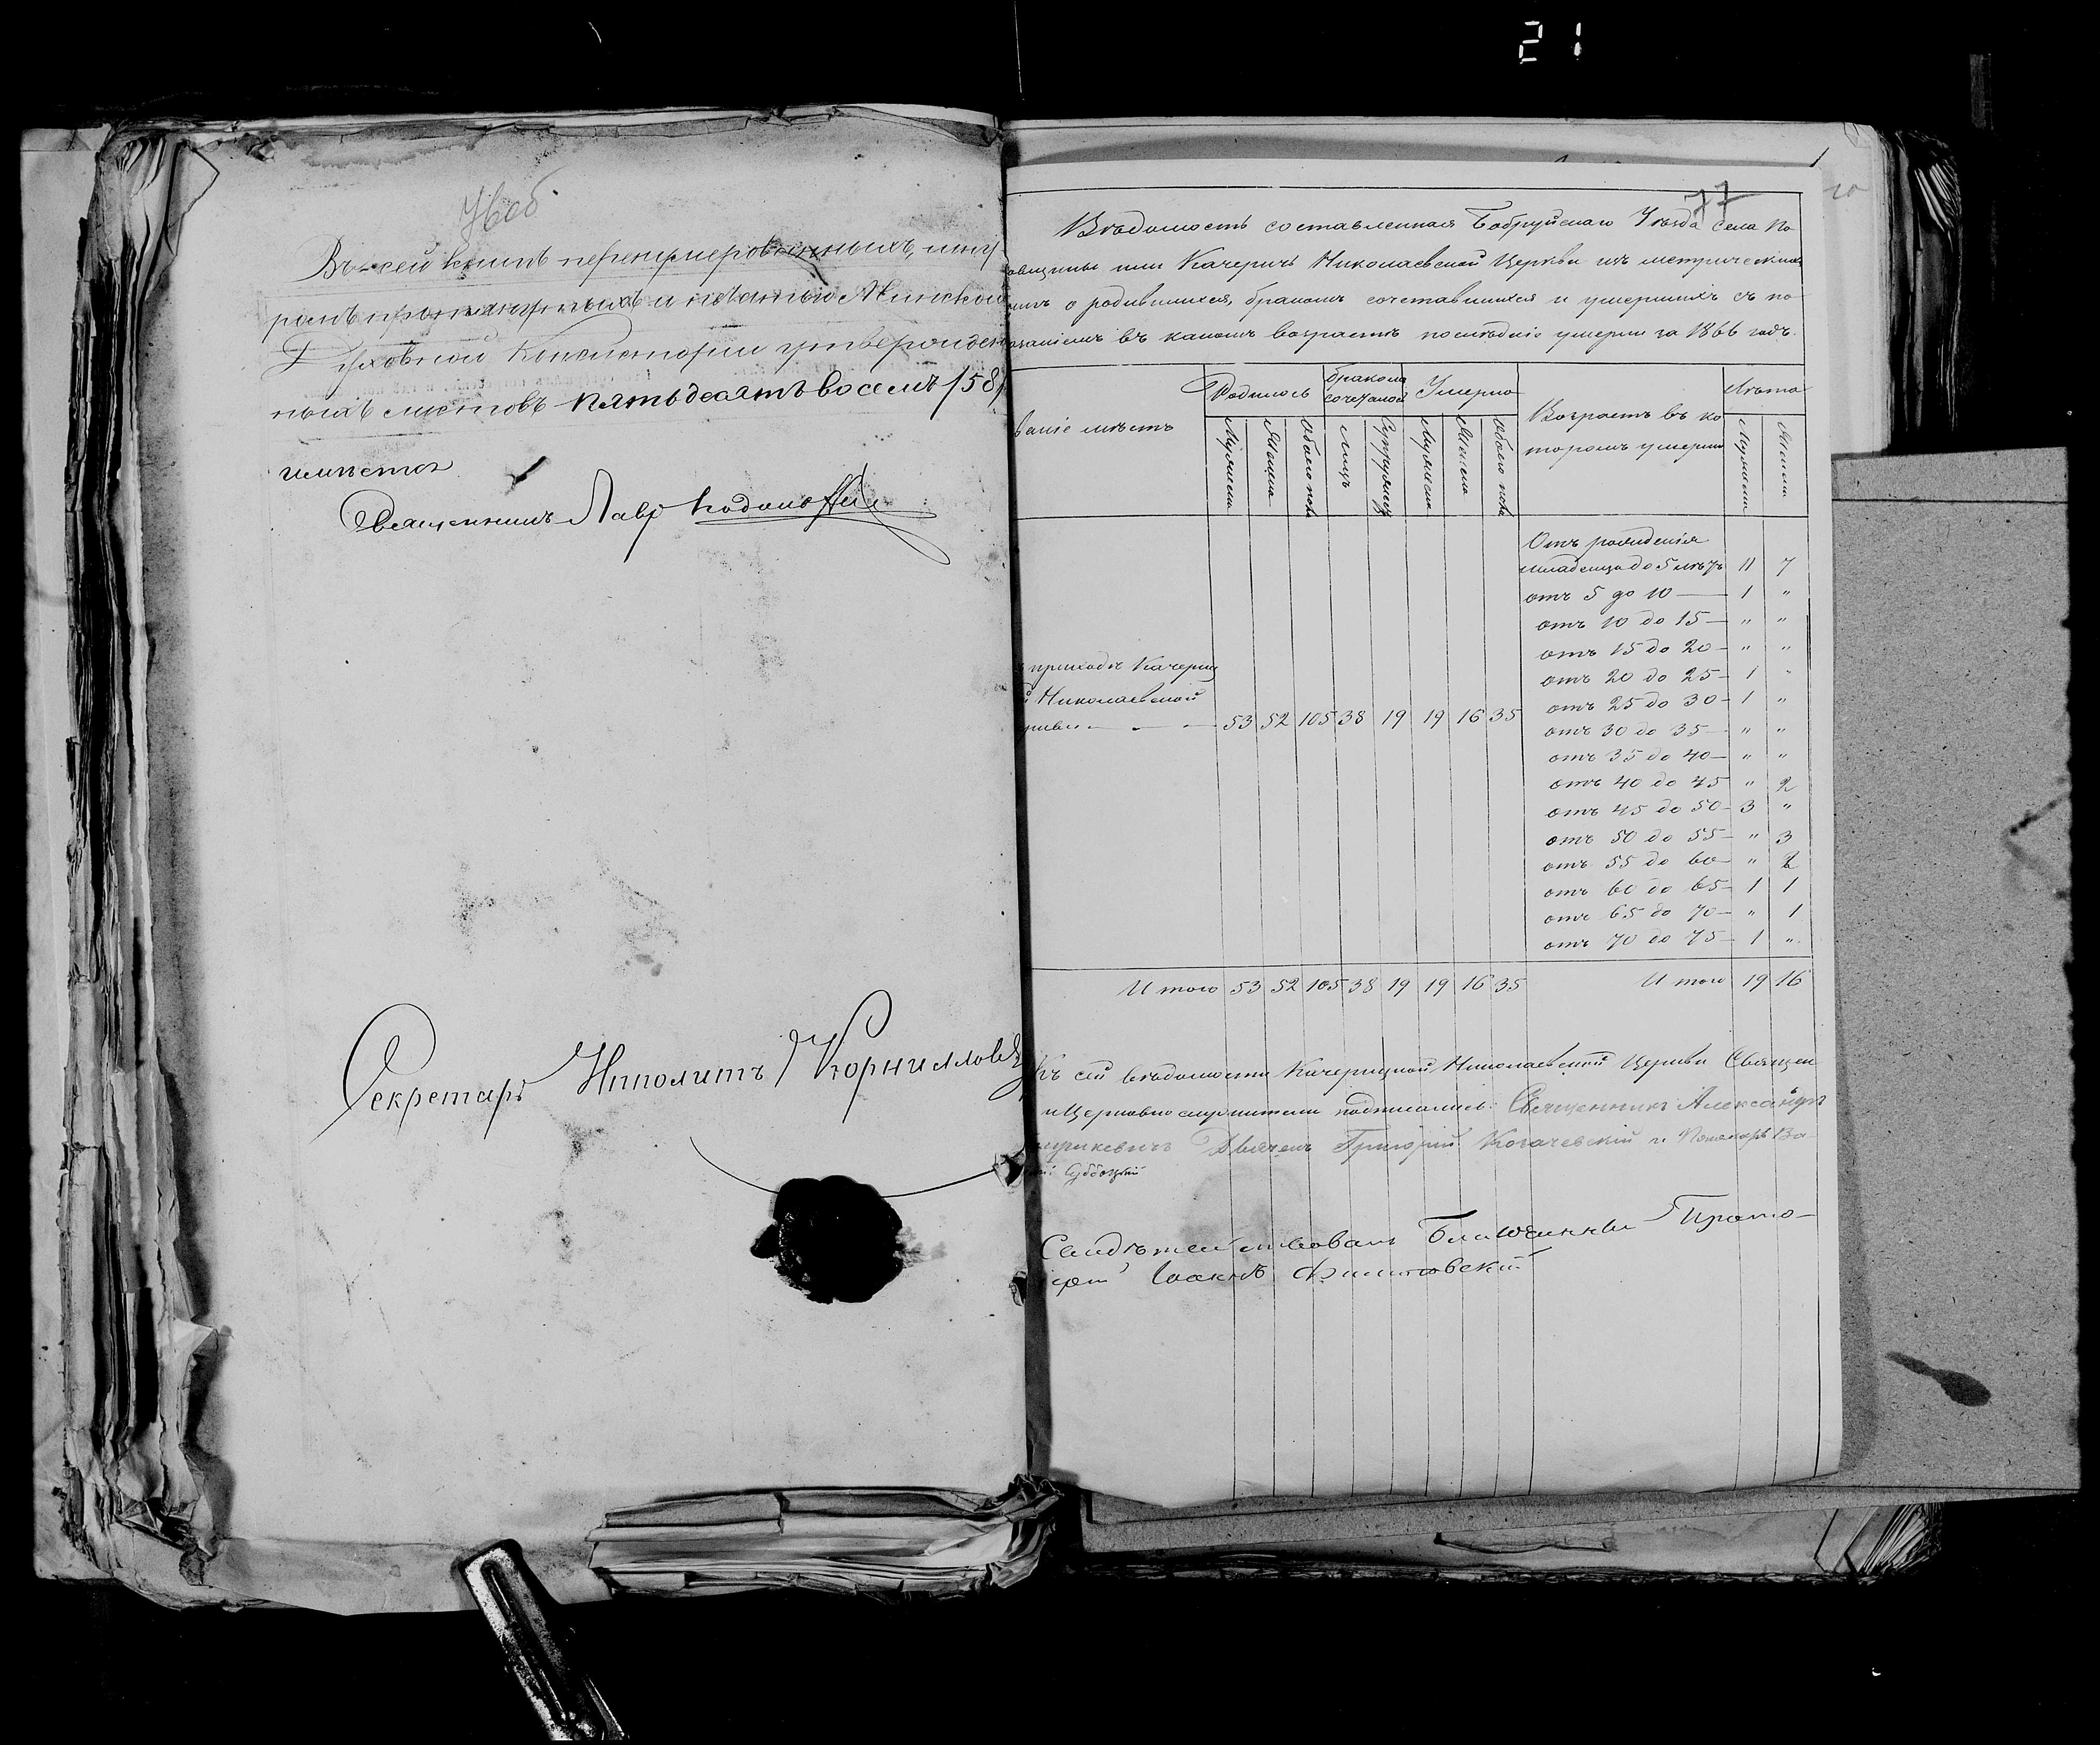 21
Въ сей книгѣ перенумерованныхъ, шну
ромъ протянутыхъ и печатью Минской
Духовной Консисторіи утвержден
ныхъ листовъ пятьдесятъ восемь /58/
Священникъ Лавр
Секретарь Иполитъ Корнилов
77
Вѣдомость составленная Бобруйскаго Уѣзда села По
овщины или Качеричъ Николаевской Церкви изъ метрическихъ
о родившихся, бракомъ сочетавшихся и умершихъ съ по
казаніемъ въ какомъ возрастѣ послѣдніе умерли за 1866 годъ.
ваніе мѣстъ
Родилось
бракомъ сочеталось
Умерло
Возрастъ въ ко
торомъ умерли
Лѣта
Мужеска
Женска
Обоего пола
Лицъ
Супружес
Мужеска
Женска
Обоего пола
Мужеска
Женска
Отъ рожденія
младенца до 5 лѣтъ 11 7
отъ 5 до 10 — 1 "
отъ 10 до 15 — " "
отъ 15 до 20 — " "
отъ 20 до 25 — 1 "
отъ 25 до 30 — 1 "
отъ 30 до 35 — " "
отъ 35 до 40 — " "
отъ 40 до 45 " 2
отъ 45 до 50 — 3 "
отъ 50 до 55 — " 3
отъ 55 до 60 — " 2
отъ 60 до 65 — 1 1
отъ 65 до 70 — " 1
отъ 70 до 75 — 1 "
приходѣ Качериц
й Николаевской
53 52 105 38 19 19 16 35
Итого 53 52 105 38 19 19 16 35 Итого 19 16
Къ сей вѣдомости Качерицкой Николаевской Церкви Священ
и Церковнослужители подписались: Священникъ Александръ
Дьячекъ Григорій Когачевскій и Пономарь Ва
Субботскій
Свидѣтельствовалъ Благочинный Прото
Іоаннъ